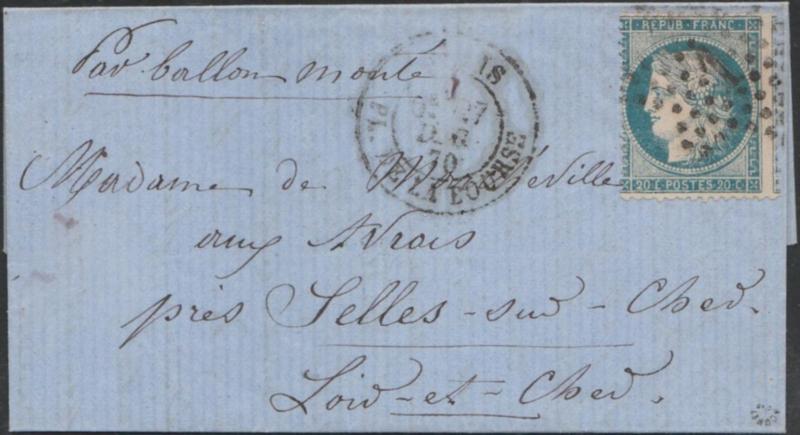 Par ballon monté
REPUB · FRANC
20 C · POSTES · 20 C
PARIS
PL. DE LA BOURSE
70
Madame de
aux
près Selles-sur-Cher.
Loir-et-Cher.